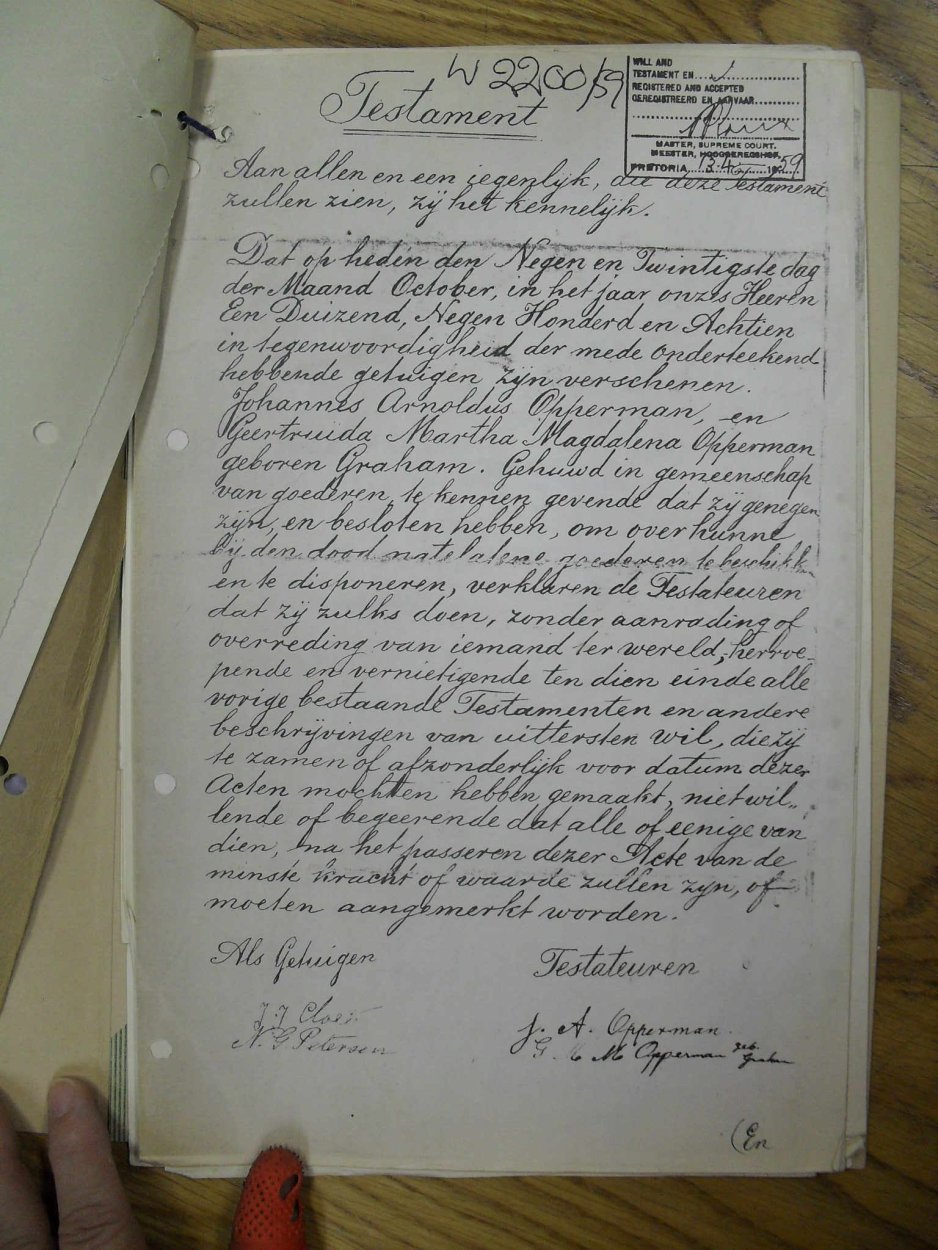 W 2200/59
WILL AND
TESTAMENT EN
REGISTERED AND ACCEPTED
GEREGISTREERD EN AANVAAR
MASTER, SUPREME COURT.
MEESTER, HOOGGEREGSHOF.
PRETORIA 13.4 19 59
Testament
Aan allen en een iegenlijk, die deze Testament
zullen zien, zij het kennelijk.
Dat op heden den Negen en Twintigste dag
der Maand October, in het jaar onzes Heeren
Een Duizend, Negen Honderd en Achtien
in tegenwoordigheid der mede onderteekend
hebbende getuigen zijn verschenen.
Johannes Arnoldus Opperman, en
Geertruida Martha Magdalena Opperman
geboren Graham. Gehuwd in gemeenschap
van goederen, te kennen gevende dat zij genegen
zijn, en besloten hebben, om over hunne
bij den dood natelatene goederen te beschikk
en te disponeren, verklaren de Testateuren
dat zij zulks doen, zonder aanrading of
overreding van iemand ter wereld; herroe-
pende en vernietigende ten dien einde alle
vorige bestaande Testamenten en andere
beschrijvingen van uittersten wil, die zij
te zamen of afzonderlijk voor datum dezer
Acten mochten hebben gemaakt, niet wil„
lende of begeerende dat alle of eenige van
dien, na het passeren dezer Acte van de
minste kracht of waarde zullen zijn, of
moeten aangemerkt worden.
Als Getuigen
Testateuren
J. J. Cloete
N. G. Petersen
J. A. Opperman.
G. M. M. Opperman geb. Graham
(En